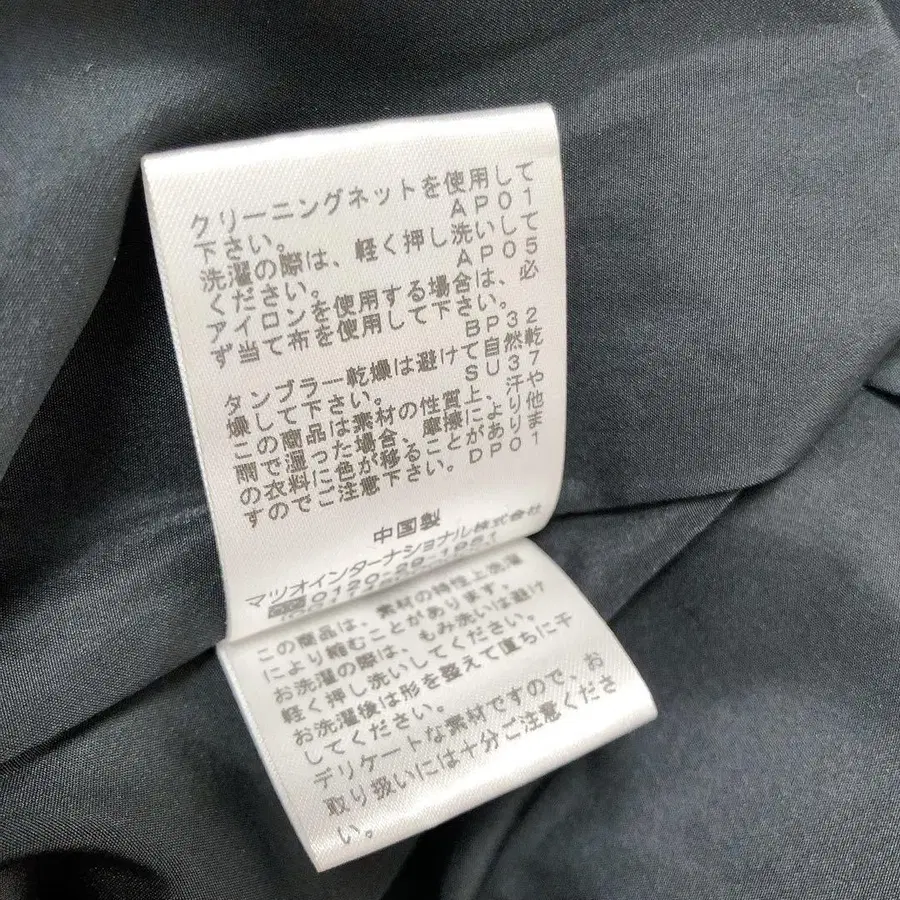 クリーニングネットを使用して
下さい。 AP01
洗濯の際は、軽く押し洗いして
ください。 AP05
アイロンを使用する場合は、必
ず当て布を使用して下さい。
BP32
タンブラー乾燥は避けて自然乾
燥して下さい。 SU37
この商品は素材の性質上、汗や
雨で湿った場合、摩擦により他
の衣料に色が移ることがありま
すのでご注意下さい。 DP01
中国製
マツオインターナショナル株式会社
0120-29-1951
この商品は、素材の特性上洗濯
により縮むことがあります。
お洗濯の際は、もみ洗いは避け
軽く押し洗いしてください。
お洗濯後は形を整えて直ちに干
してください。
デリケートな素材ですので、お
取り扱いには十分ご注意くださ
い。